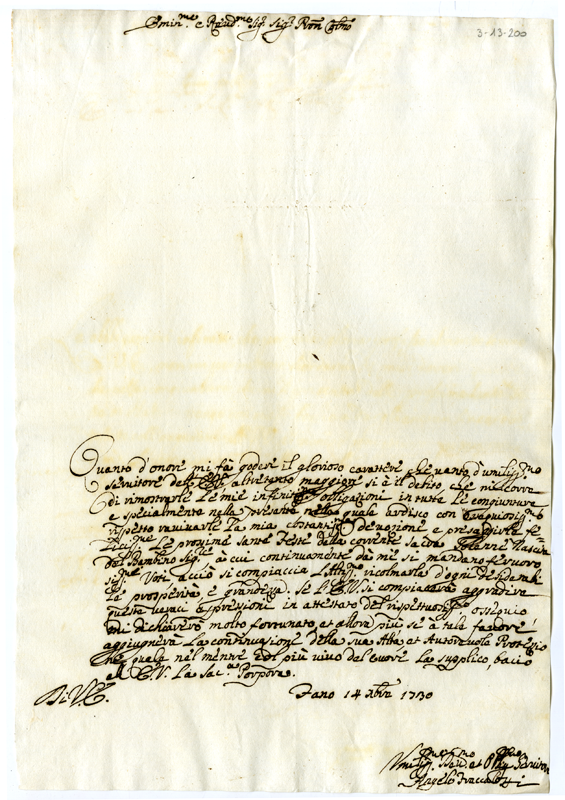 Emin.mo e Revd.mo Sig.r Sig.r Pron Colmo
3-13-200
Quanto d'onore mi fà godere il glorioso carattere che vanto d'umiliss.mo
servitore dell' altretanto maggiore si è il debito, che mi corre
di rimostrarle le mie infinite obligazioni in tutte le congiunture
e specialmente nella presente nella quale ardisco con ossequiosiss.mo
rispetto ravivarle la mia costantiss.ma devozione e presagirle fe-
licissime le prossime sante Feste della corrente sacra solenne Nascita
del Bambino à cui continuamente da me si mandano fervoro
sissimi Voti acciò si compiaccia l'Altiss.mo ricolmarla d'ogni desidera
le prosperità e grandezza. Se l'E.V. si compiacerà aggradire
queste veraci espressioni in attestato del rispettuoso ossequio
mi dichiarerò molto fortunato, et allora più se à tale favore
aggiugnerà la continuazione della sua Alta, et Autorevole Protezzio
ne, quale nel mentre col più vivo del cuore la supplico, bacio
all' E.V. la Sac. Porpora.
Di V.E. Fano 14 Xbre 1730
Umiliss.mo Dev. et Obblig. Servitore
Angelo